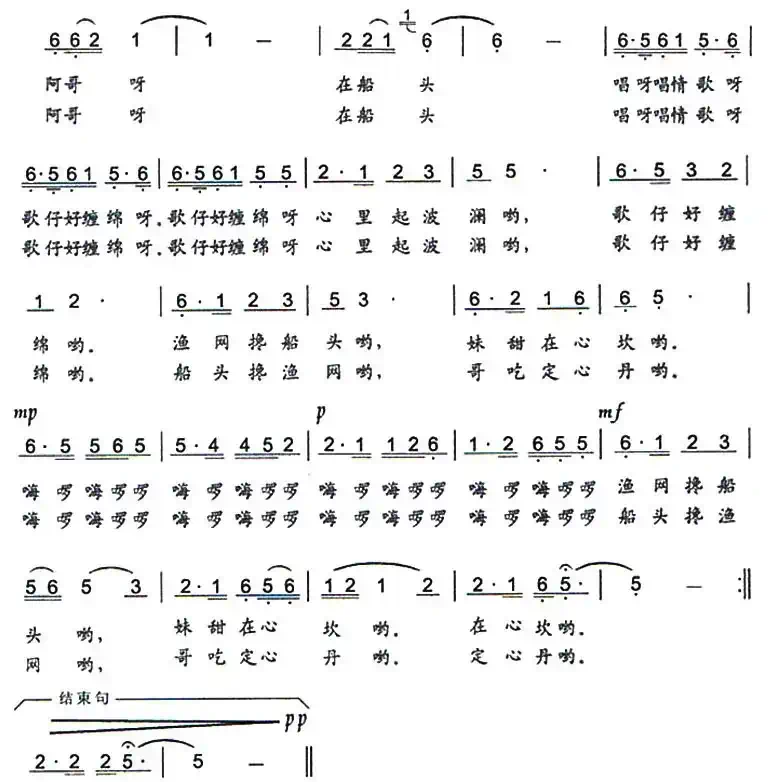 6 6 2 1 | 1 — | 2 2 1 1 6 | 6 — | 6·5 6 1 5·6 |
阿哥 呀 在船 头 唱呀唱情歌呀
阿哥 呀 在船 头 唱呀唱情歌呀
6·5 6 1 5·6 | 6·5 6 1 5 5 | 2·1 2 3 | 5 5· | 6·5 3 2 |
歌仔好缠绵呀.歌仔好缠绵呀 心里起波 澜哟, 歌仔好缠
歌仔好缠绵呀.歌仔好缠绵呀 心里起波 澜哟, 歌仔好缠
1 2· | 6·1 2 3 | 5 3· | 6·2 1 6 | 6 5· |
绵哟. 渔网搀船 头哟, 妹甜在心 坎哟.
绵哟. 船头搀渔 网哟, 哥吃定心 丹哟.
mp p mf
6·5 5 6 5 | 5·4 4 5 2 | 2·1 1 2 6 | 1·2 6 5 5 | 6·1 2 3 |
嗨啰嗨啰啰 嗨啰嗨啰啰 嗨啰嗨啰啰 嗨啰嗨啰啰 渔网搀船
嗨啰嗨啰啰 嗨啰嗨啰啰 嗨啰嗨啰啰 嗨啰嗨啰啰 船头搀渔
5 6 5 3 | 2·1 6 5 6 | 1 2 1 2 | 2·1 6 5· | 5 — :||
头 哟, 妹甜在心 坎 哟. 在心坎哟.
网 哟, 哥吃定心 丹 哟. 定心丹哟.
结束句
pp
2·2 2 5· | 5 — ||